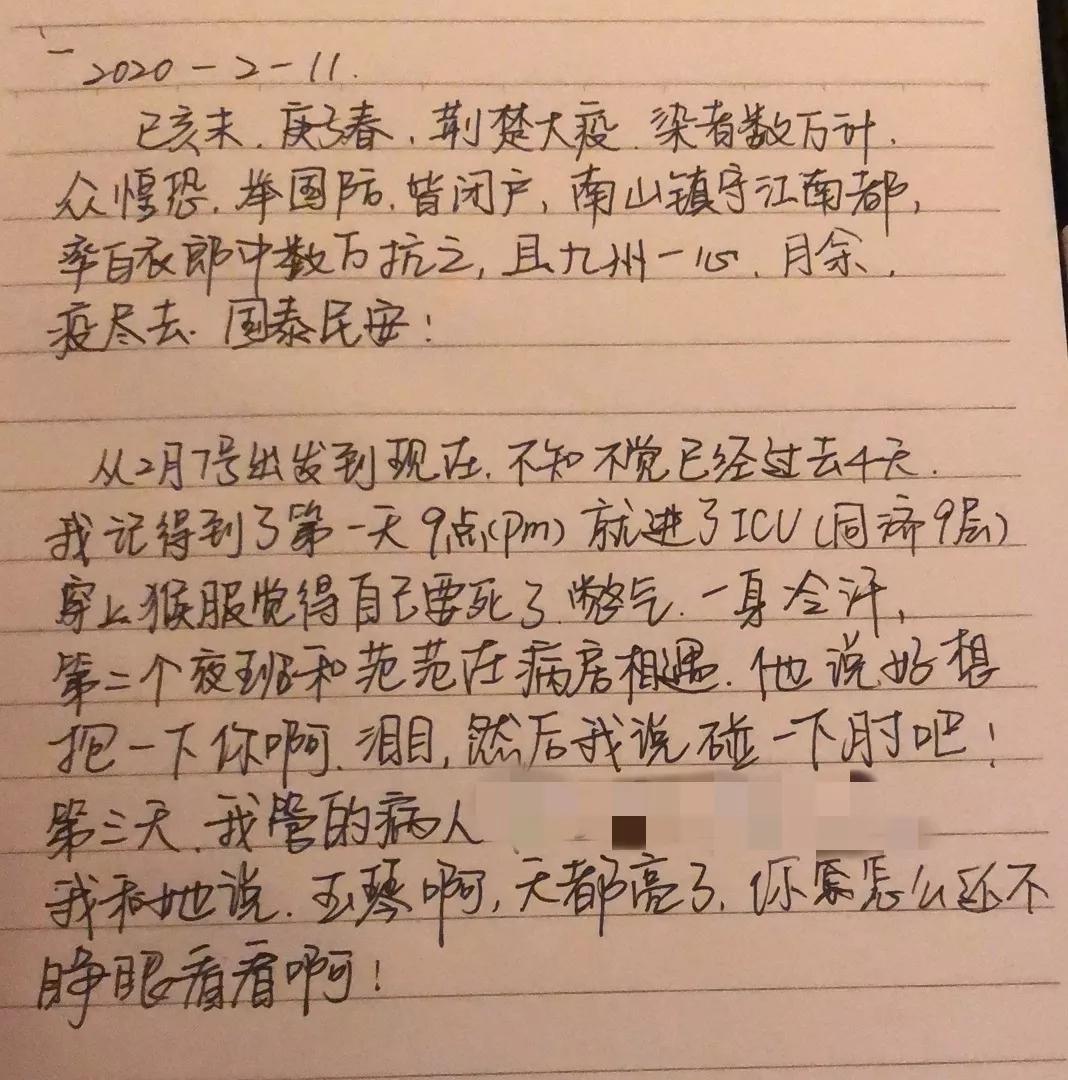 2020-2-11.
已亥末.庚子春,荆楚大疫.染者数万计.
众惶恐.举国防.皆闭户,南山镇守江南都,
率白衣郎中数万抗之,且九州一心.月余.
疫尽去.国泰民安!
从2月7号出发到现在.不知不觉已经过去4天.
我记得到了第一天9点(pm)就进了ICU(同济9层)
穿上猴服觉得自己要死了.憋气.一身冷汗,
第二个夜班和范范在病房相遇.他说好想
抱一下你啊.泪目,然后我说碰一下肘吧!
第三天.我管的病人
我和她说.玉琴啊,天都亮了.你怎么还不
睁眼看看啊!